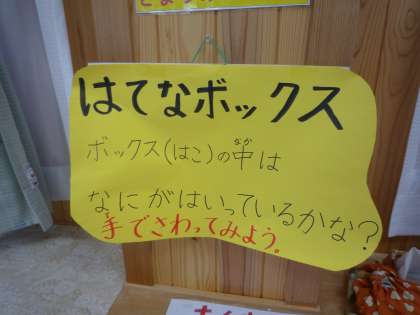 はてなボックス
ボックス(はこ)の中は
なにがはいっているかな?
手でさわってみよう。